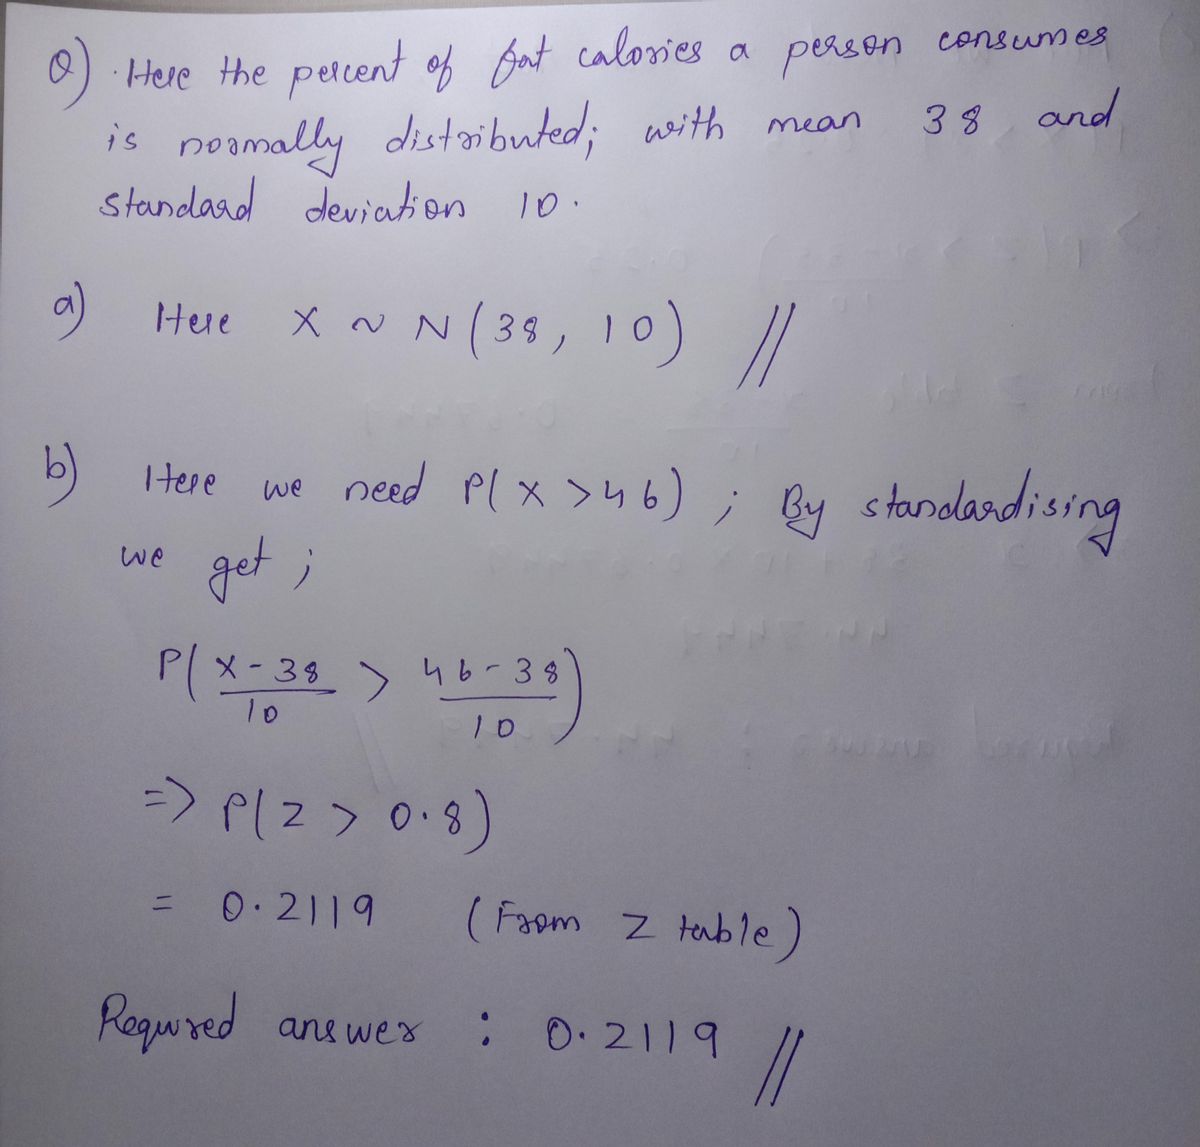 Q) Here the percent of fat calories a person consumes
is normally distributed; with mean 38 and
standard deviation 10.
a) Here X ~ N(38, 10) //
b) Here we need P(X > 46) ; By standardising
we get ;
P( X-38 / 10 > 46-38 / 10 )
=> P(Z > 0.8)
= 0.2119 (From Z table)
Required answer : 0.2119 //